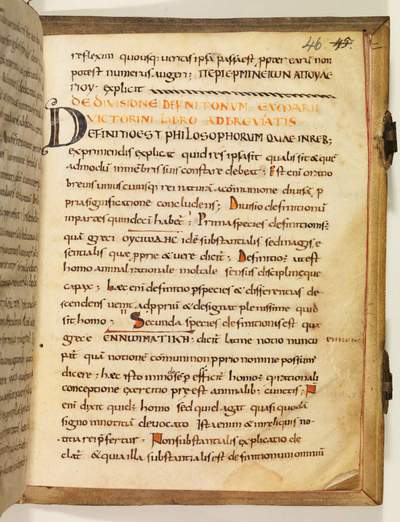 46 45
reflexim quousq; ueritas ipsa passa est, ppter earum non
potest numerus augeri; ΠEPIEPMENEION AΠOYΛE
ΓIOY. explicit
DE DIVISIONE DEFINITIONUM EX MARII
VICTORINI LIBRO ADBREVIATIS
DEFINITIO EST PHILOSOPHORUM QUAE IN REB;
exprimendis explicat quid res ipsa sit qualis sit & quẽ
admodũ membris suis constare debeat; Est enĩ oratio
breuis unius cuiusq; rei naturã a cõmunione diuisã p
pria significatione concludens; Diuisio definitionũ
in partes quindecĩ habet; Prima species definitionis;
quã greci OYCIΩΔHC idẽ substantialis
sentialis quae pprie & uere dicit; Definitio ut est
homo animal rationale mortale sensus disciplineque
capax; haec eni definitio p species & differentias de
scendens uenit ad ppriũ & designat plenissime quid
sit homo; Secunda species definitionis est quae
grece ENNΩIMATIKH; dicit latine notio nuncu
pat quã notione cõmuni non pprio nomine possum;
dicere; haec isto modo semper efficit homo; q rationali
conceptione & exercitio pre est animalib; cunctis; N
eni dixit quid; homo sed quid agat quasi quodã
signo in notitiã deuocato Ista enim & in reliquis no
titia rei pfertur; Non substantialis explicatio de
clarat & qua illa substantialis est definitionum omniũ